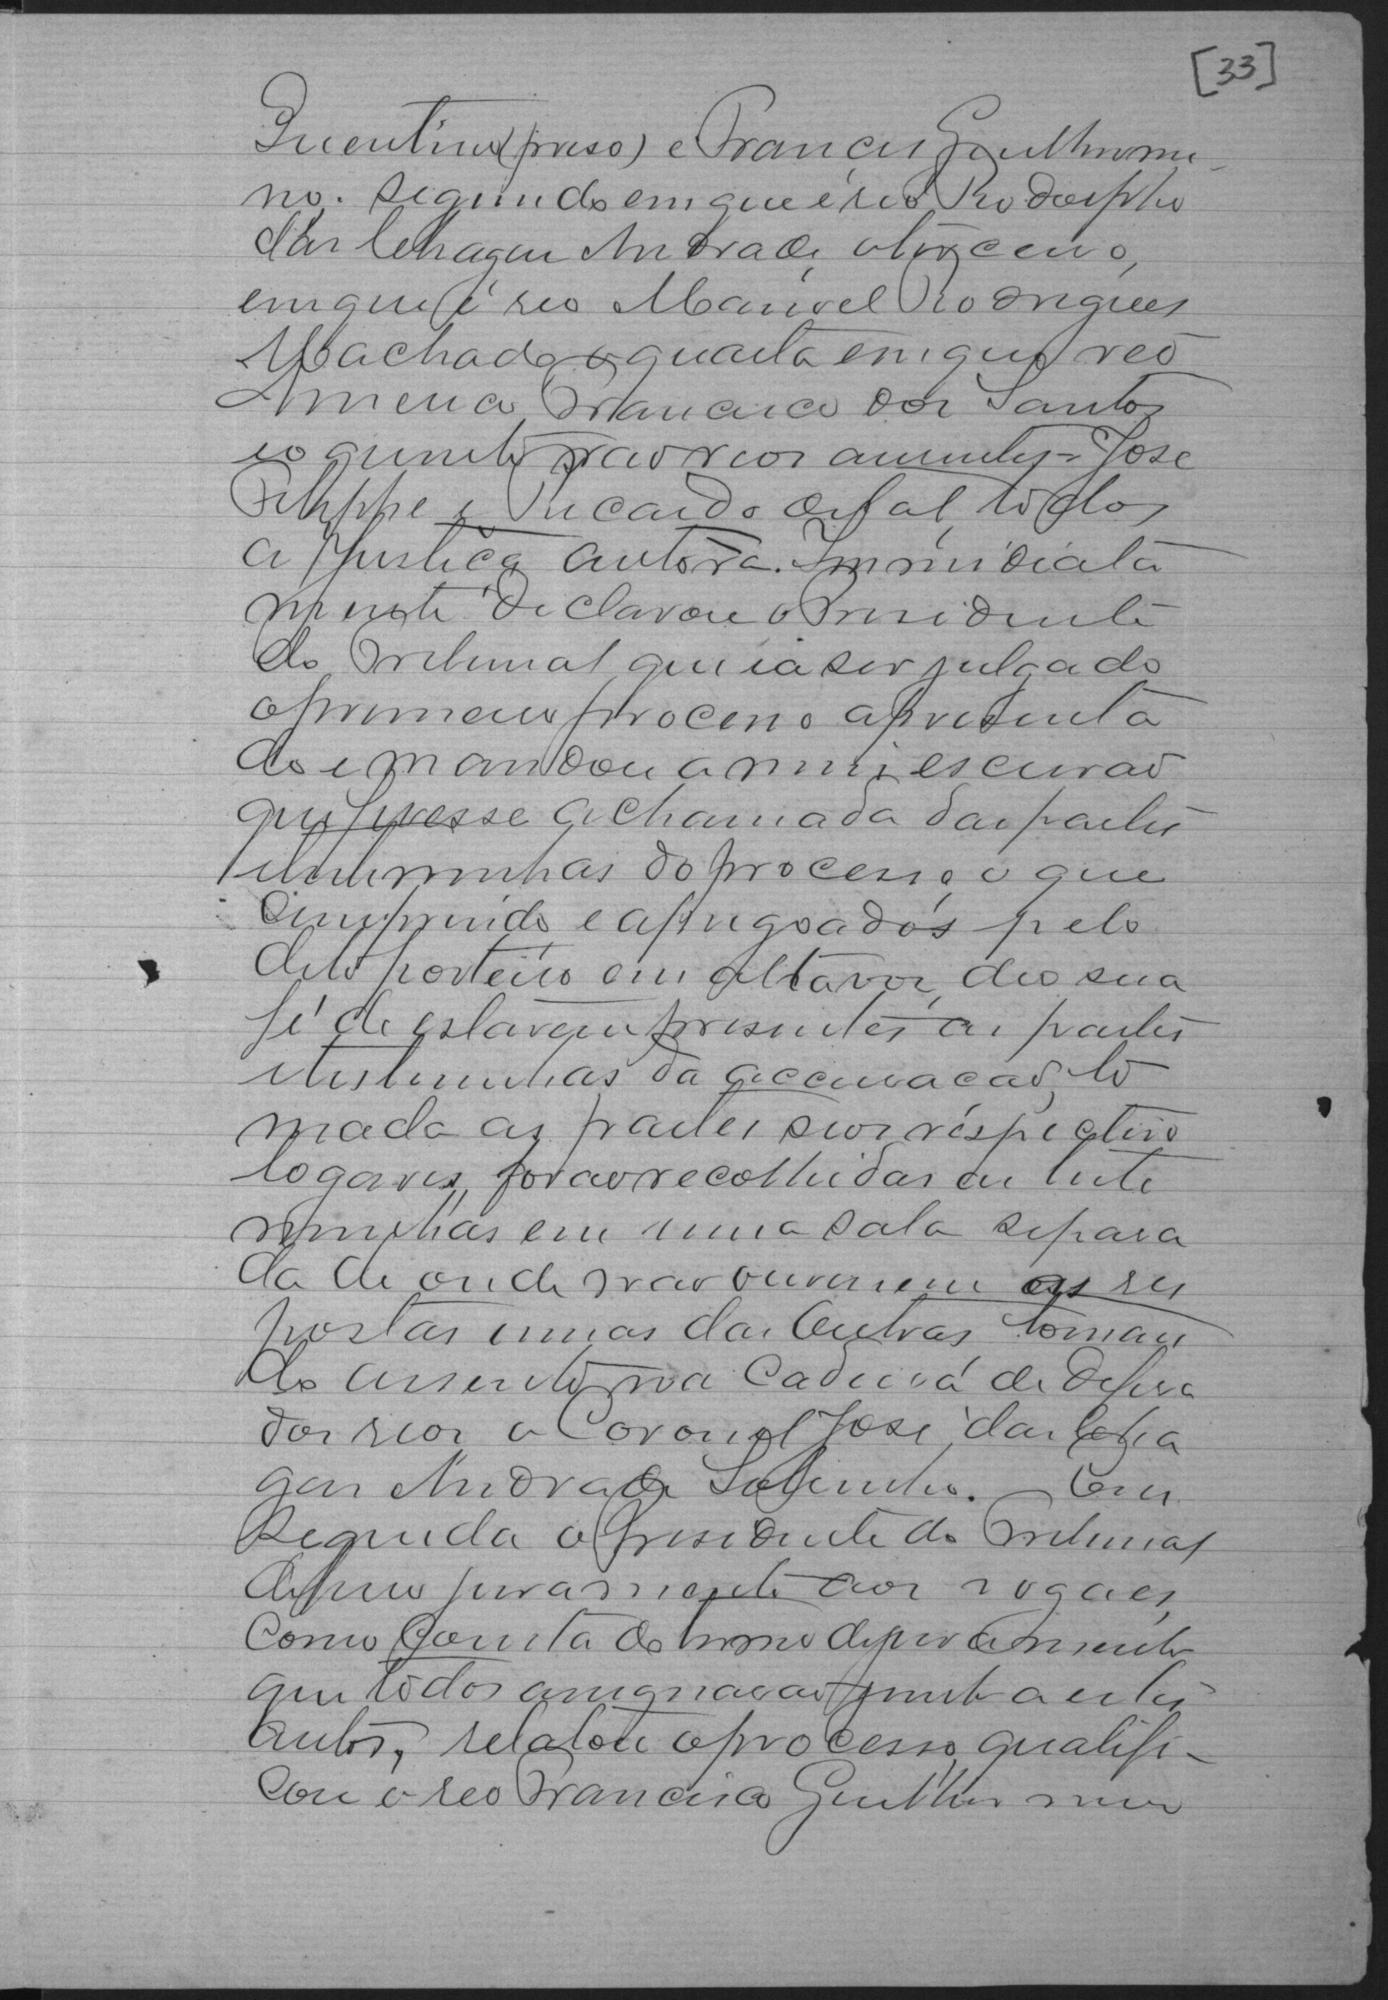 [33]
Quentino (preso) e Francisco Guilhermi-
no. segundo em que é reo Rodolpho
das Chagas Andrade, o terceiro,
em que é reo Manoel Rodrigues
Machado o quarto em que reo
Americo Francisco dos Santos
e o quinto são reos auzentes = José
Felippe e Ricardo de tal, todos
a Justiça autora. Immidiata
mente declarou o Presidente
do Tribunal que ia ser julgado
o primeiro processo apresenta
do e mandou a mim escrivão
que fizesse a chamada das partes
e testeminhas do processo, o que
cumprindo e apregoados pelo
dito porteiro em alta voz, deo sua
fé de estarem presentes as partes
e testeminhas da accusação, to
mada as partes seos respectivo
logares, forão recolhidas as teste
minhas em uma sala separa
da de onde não ouvissem as res
postas umas das outras, toman
do assento na cadeira de defesa
dos reos o Coronel José das Cha
gas Andrade Sobrinho. Em
seguida o Presidente do Tribunal
deferio juramento aos vogaes,
como consta do termo de juramento
que todos assignarão junto a estes
autos, relatou o processo, qualifi-
cou o reo Francisco Guilhermino